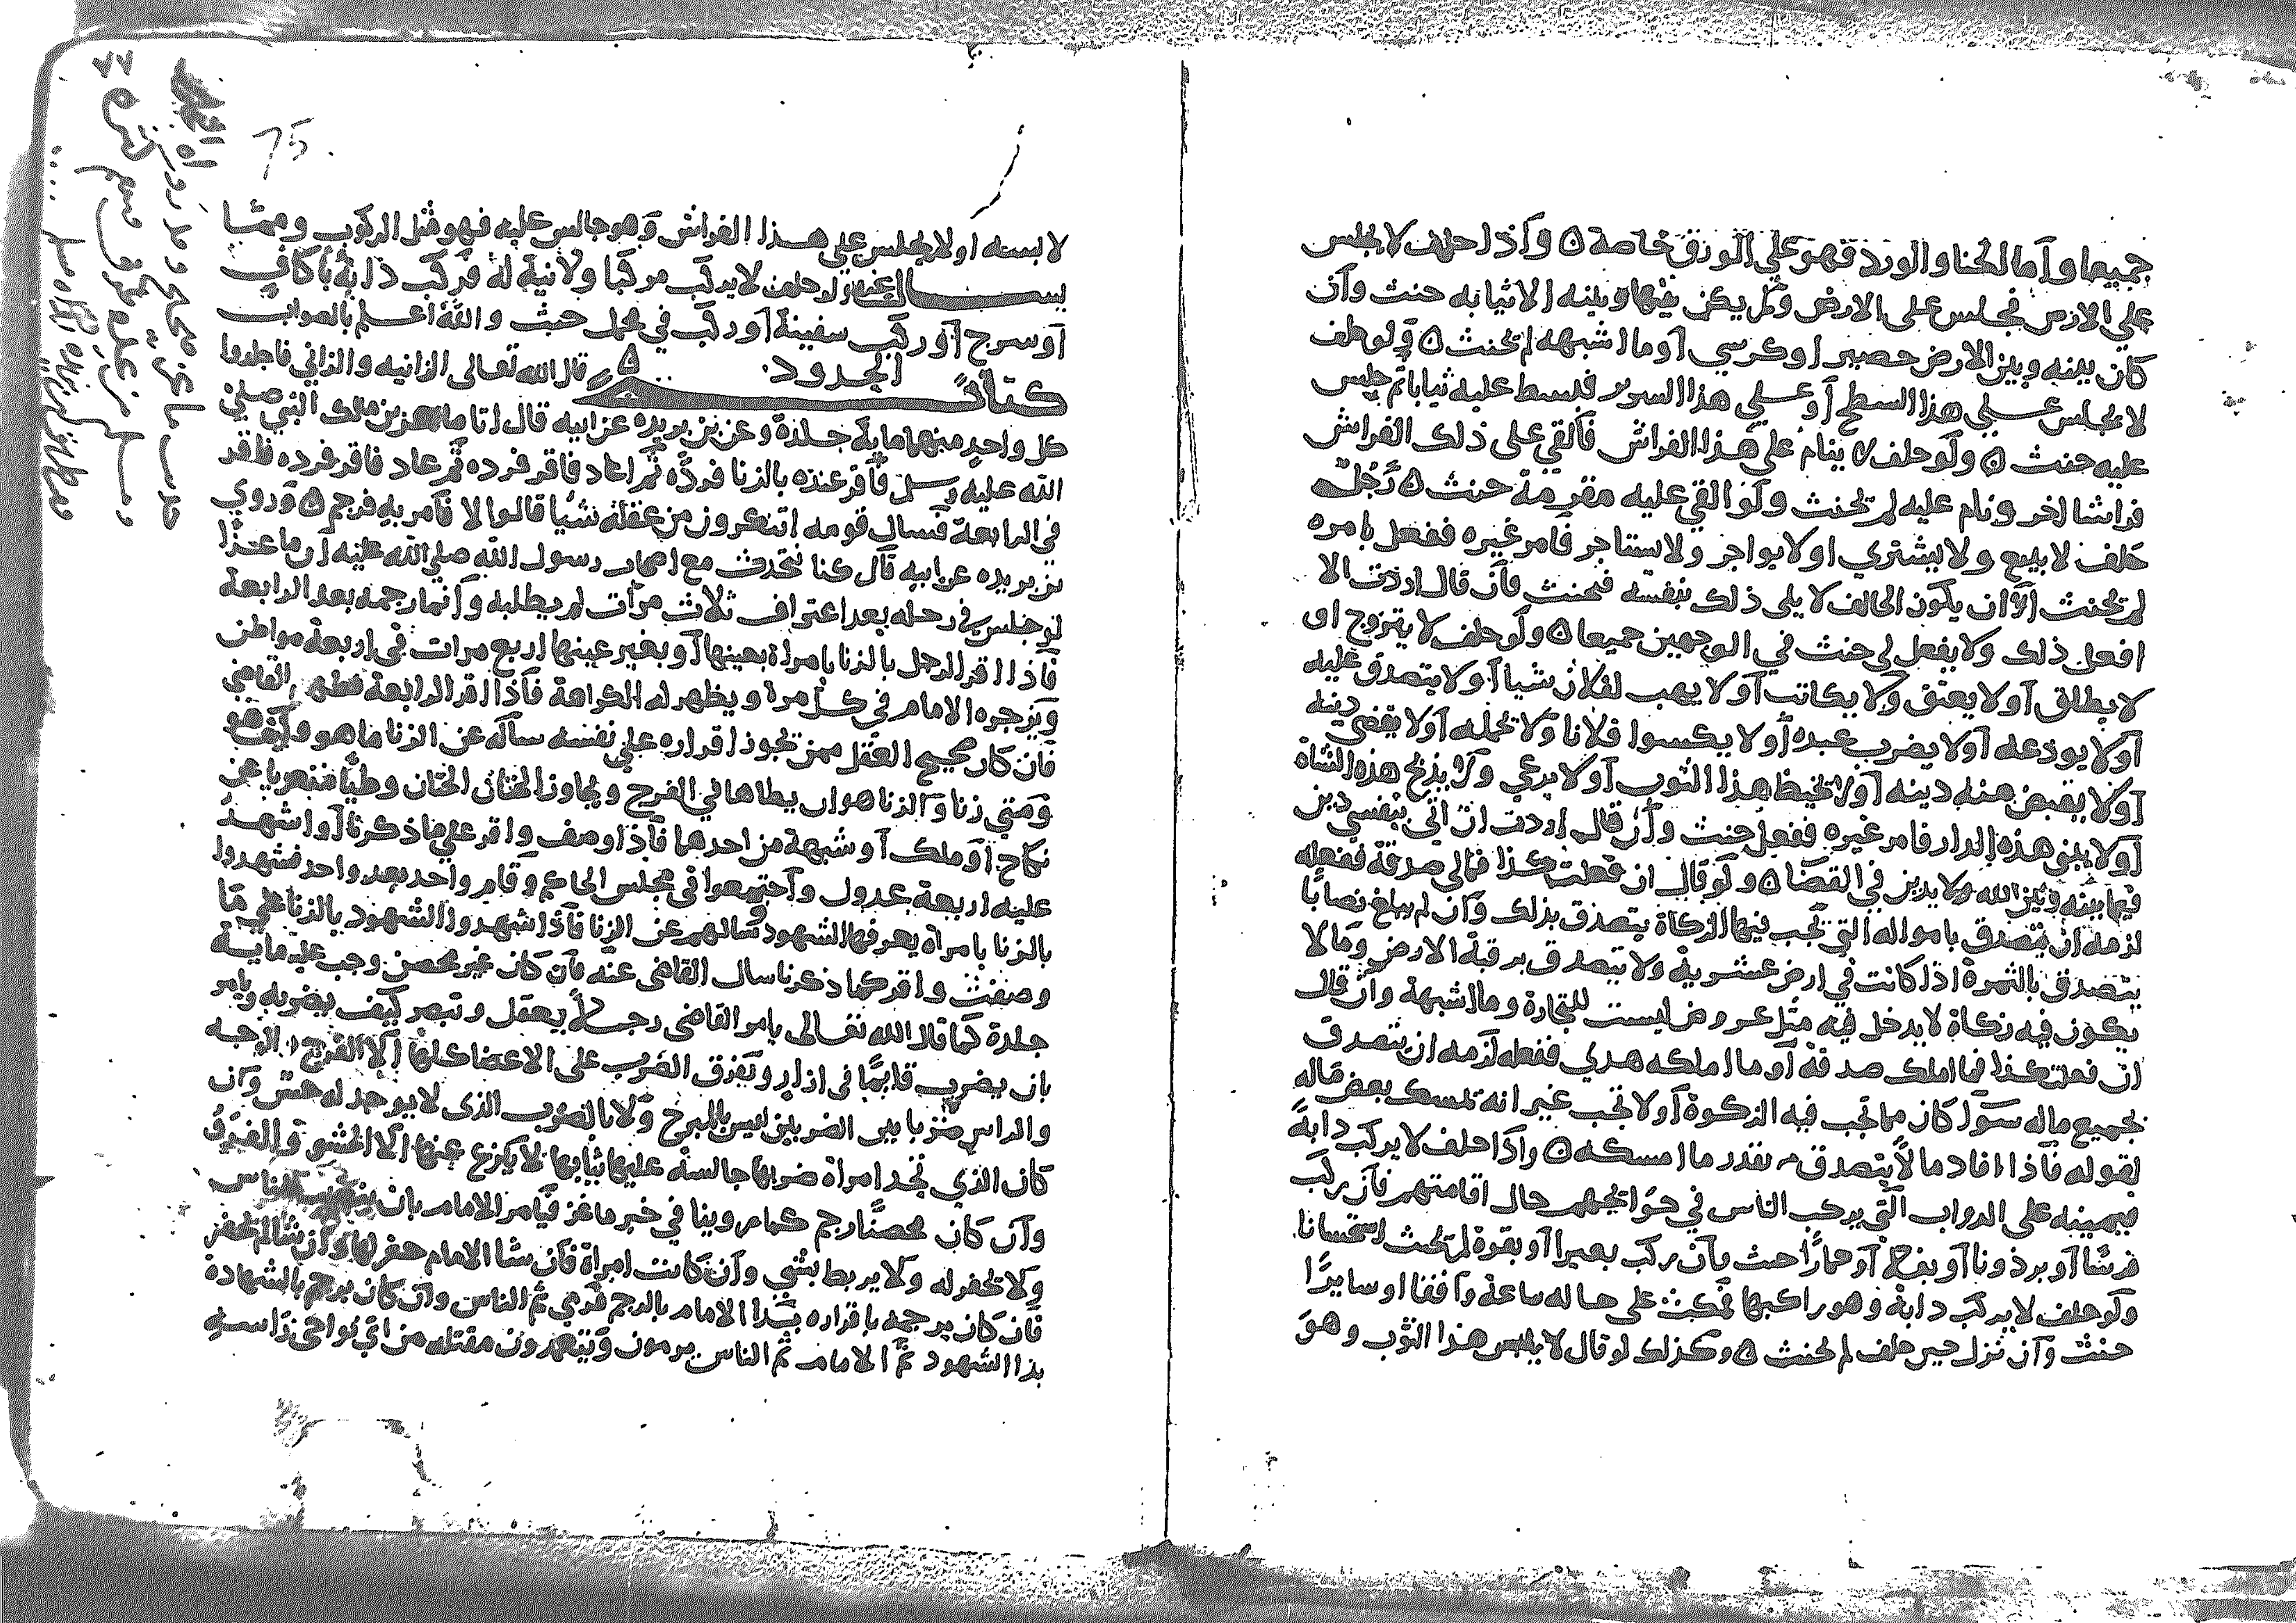 جميعا وأما الحنا والورد فهو علي الورق خاصة ۵ وأذا حلف لا يجلس
علي الارض فجلس على الارض ولم يكن بينها وبينه الا ثيابه حنث وأن
كان بينه وبين الارض حصير او كرسي أو ما اشبهه لم يحنث ۵ ولو حلف
لا يجلس علي هذا السطح أو علي هذا السرير فبسط عليه ثيابا ثم جلس
عليه حنث ۵ ولو حلف لا ينام علي هذا الفراش فألقي على ذلك الفراش
فراشا اخر ونام عليه لم يحنث ولو القي عليه مقرمة حنث ۵ رجل
حلف لا يبيع ولا يشتري او لا يواجر ولا يستاجر فأمر غيره ففعل بامره
لم يحنث الا أن يكون الحالف لا يلى ذلك بنفسه فحنث فأن قال اردت الا
افعل ذلك ولا يفعل لى حنث في الوجهين جميعا ۵ ولو حلف لا يتزوج او
لا يطلق أو لا يعتق ولا يكاتب أو لا يهب لفلان شيا أو لا يتصدق عليه
أو لا يودعه أولا يضرب عبده أو لا يكسوا فلانا ولا يحمله أولا يقضي دينه
أو لا يقبض منه دينه أو لا يخيط هذا الثوب أو لا يدعي ولا يذبح هذه الشاة
أو لا يبني هذه الدار فامر غيره ففعل حنث وأن قال اردت ان الي بنفسي دين
فيما بينه وبين الله ولا يدين في القضا ۵ ولو قال ان فعلت كذا فمالي صدقة ففعله
لزمه ان يتصدق بامواله التي تجب فيها الزكاة يتصدق بذلك وأن لم يبلغ نصابا
يتصدق بالثمرة اذا كانت في ارض عشرية ولا يتصدق برقبة الارض وما لا
يكون فيه زكاة لا يدخل فيه مثل عروض ليست للتجارة وما اشبهه وأن قال
ان فعلت كذا فما املك صدقة أو ما املكه هدي ففعله لزمه ان يتصدق
بجميع ماله سوآ كان مما تجب فيه الزكوة أو لا تجب غير انه تمسك بعض ماله
لقوله فأذا افاد مالا يتصدق بقدر ما امسكه ۵ واذا حلف لا يركب دابة
فيمينه على الدواب التي يركب الناس في حوايجهم حال اقامتهم فأن ركب
فرسا أو برذونا أو بغلا أو حمارا حنث وأن ركب بعيرا أو بقرة لم يحنث استحسانا
ولو حلف لا يركب دابة وهو راكبها فمكث على حاله ساعة وآقفا او سايرا
حنث وأن نزل حين حلف لم يحنث ۵ وكذلك لو قال لا يلبس هذا الثوب وهو
75
لابسه او لا يجلس علي هذا الفراش وهو جالس عليه فهو مثل الركوب ومما
يسال عنه ولو حلف لا يركب مركبا ولا نية له فركب دابة بأكاف
أو سرج أو ركب سفينة أو ركب في محمل حنث والله اعلم بالصواب
كتاب الحدود ۵ قال الله تعالى الزانيه والزاني فاجلدوا
كل واحد منهما ماية جلدة وعن بن بريده عن ابيه قال اتا ماعز بن ملك النبي صلي
الله عليه وسلم فأقر عنده بالزنا فرده ثم اعاد فاقر فرده ثم عاد فاقر فرده فاقر
في الرابعة فسال قومه اتنكرون من عقله شيأ قالوا لا فأمر به فرجم ۵ وروي
بن بريده عن ابيه قال كنا نتحدث مع اصحاب رسول الله صلي الله عليه أن ماعزا
لو جلس في رحله بعد اعتراف ثلاث مرات لم يطلبه وأنما رجمه بعد الرابعة
فأذا اقر الرجل بالزنا بامراة بعينها أو بغير عينها اربع مرات في اربعة مواطن
ويزجره الامام في كل مرة ويظهر له الكراهة فأذا اقر الرابعة القاضي
فأن كان صحيح العقل ممن يجوز اقراره علي نفسه سأله عن الزنا ما هو وكيف هو
ومتي زنا والزنا هو ان يطاها في الفرج ويجاوز الختان الختان وطيا متعريا عن
نكاح أو ملك أو شبهة من احدهما فأذا وصف واقر علي ما ذكرنا أو شهد
عليه اربعة عدول واجتمعوا في مجلس الحاكم وقام واحد بعد واحد فشهدوا
بالزنا بامراة يعرفها الشهود سالهم عن الزنا فأذا شهدوا الشهود بالزنا علي ما
وصفت واقر كما ذكرنا سال القاضي عنه فأن كان غير محصن وجب عليه ماية
جلدة كما قال الله تعالى يامر القاضي رجلا يعقل وتبصر كيف يضربه ويامر
بان يضرب قايما في ازار وتفرق الضرب على الاعضا كلها الا الفرج والوجه
والراس ضربا بين الضربين ليس بالمبرح ولا بالضرب الذي لا يوجد له مس وأن
كان الذي تحد امراة ضربها جالسة عليها ثيابها لا ينزع عنها الا الحشو والفرو
وأن كان محصنا رجم كما روينا في خبر ماعز فيأمر الامام بان الناس
ولا يحفر له ولا يربط بشي وأن كانت امراة فأن شا الامام حفر لها وأن شا لم يحفر
فأن كان يرجمه باقراره بدا الامام بالرجم فرمي ثم الناس وأن كان يرجم بالشهادة
بدا الشهود ثم الامام ثم الناس يرمون ويتعمدون مقتله من اي نواحي راسه